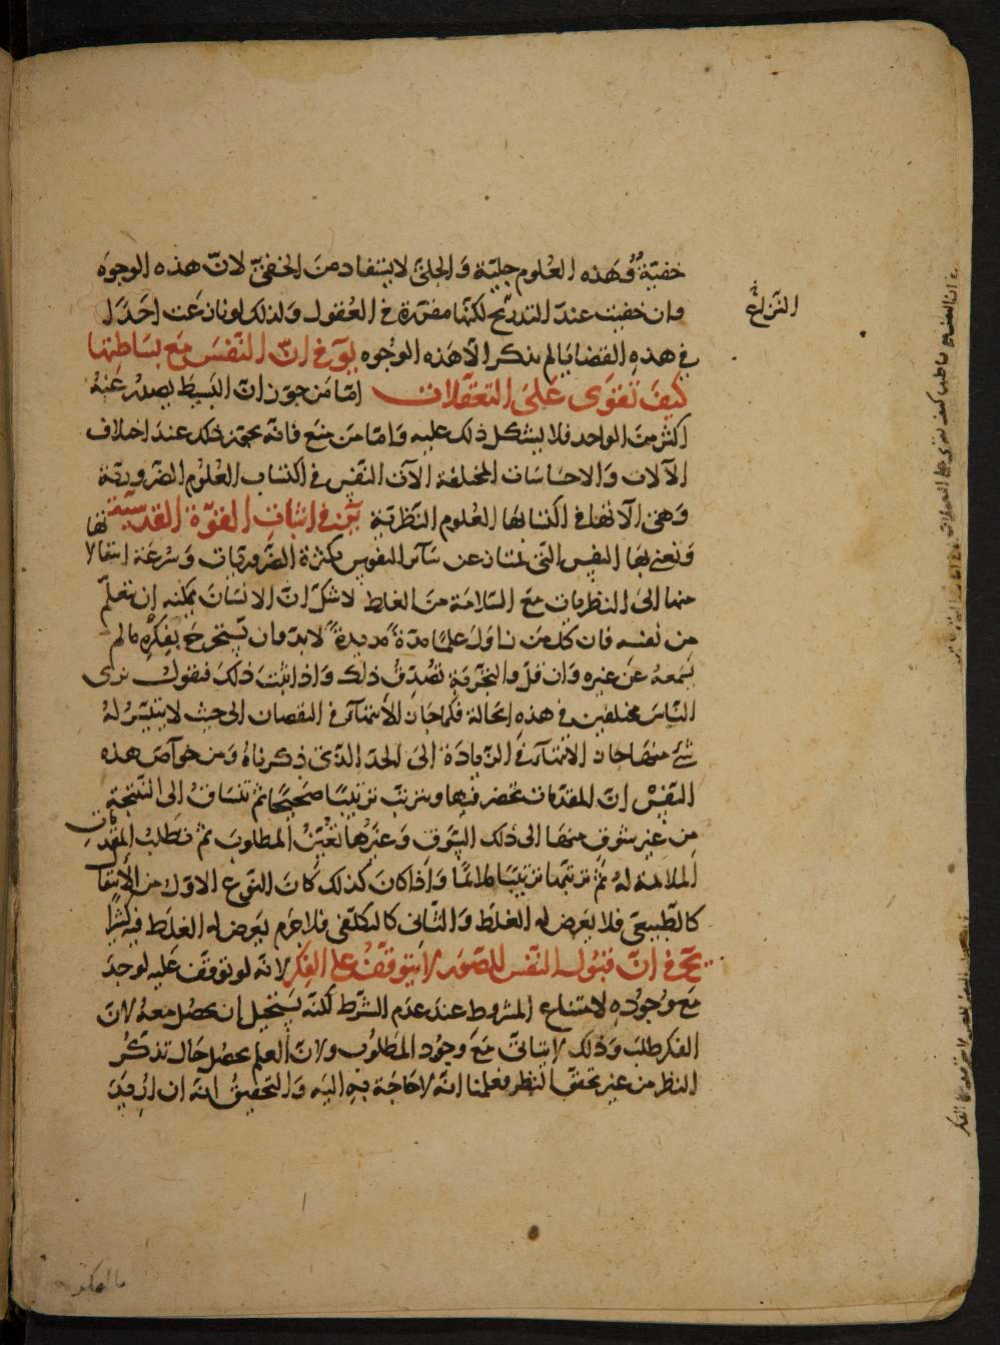 خفيّة وهذه العلوم جليّة والجليّ لا يستفاد من الخفيّ لانّ هذه الوجوه
وان خفيت عند التدريج لكنّها مقررة في العقول ولذلك لو نازعت احدا
في هذه القضايا لم يذكر الا هذه الوجوه يو في انّ النفس مع بساطتها
كيف تقوى على التعقلات امّا من جوز انّ البسيط يصدر عنه
اكثر من الواحد فلا يشكل ذلك عليه وامّا من منع فانّه يجوز ذلك عند اختلاف
الآلات والاحساسات المختلفة الآت النفس في اكتساب العلوم الضرورية
وهي الآتها في اكتسابها العلوم النظرية يز في اثبات القوّة القدسيّة
ونعني بها النفس التي تمتاز عن سائر النفوس بكثرة الضروريات وسرعة انتقالاتها
منها الى النظريات مع السلامة من الغلط لا شكّ انّ الانسان يمكنه ان يتعلّم
من نفسه فان كل من ناول علما مدة مديدة لا بد وان يستخرج بفكره ما لم
يسمعه عن غيره وان قلّ والتجربة تصدق ذلك واذا ثبت ذلك فنقول نرى
الناس مختلفين في هذه الحالة فكما جاز الانتهاء في النقصان الى حيث لا يتيسر له
شئ منها جاز الانتهاء في الزيادة الى الحد الذي ذكرناه ومن خواصّ هذه
النفس انّ المقدمات تحضر فيها ويترتب ترتيبا صحيحا ثم تنساق الى النتيجة
من غير شوق منها الى ذلك الشوق وغيرها تعيّن المطلوب ثم تطلب المقدمات
الملائمة له ثم ترتبها ترتيبا ملائما واذا كان كذلك كان النوع الاول من الانتقا
كالطبيعي فلا يعرض له الغلط والثاني كالتكلفي فلا جرم يعرض له الغلط فيه كثيرا
يح في انّ قبول النفس للصور لا يتوقف على الفكر لانه لو توقف عليه لوجد
مع وجوده لامتناع المشروط عند عدم الشرط لكنّه يستحيل ان يحصل معه لانّ
الفكر طلب وذلك لا يتاتى مع وجود المطلوب ولانّ العلم يحصل حال تذكّر
النظر من غير تحقق النظر فعلمنا انّه لا حاجة به اليه والتحقيق انّه ان اريد
النزاع
بالفكر